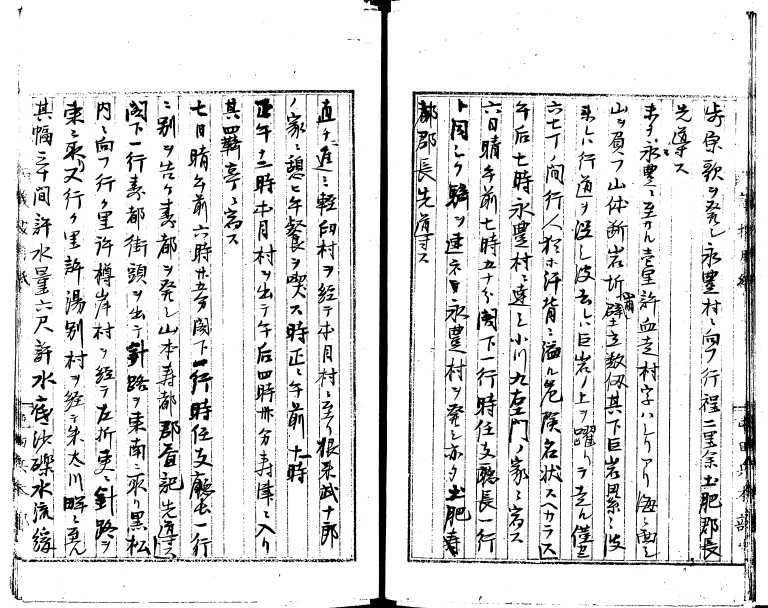 歩原歌ヲ発シ永豊村ニ向フ行程二里余土肥郡長
先導ス
未タ永豊ニ至ラル壱里許血走村字ハレリアリ海ニ面シ
山ヲ負フ山体断岩圻壁立数仭其下巨岩累々波
来レハ行道ヲ没シ波去レハ巨岩ノ上ヲ躍リヲ走ル僅ニ
六七丁ノ間行人殆ホ汗背ニ溢ル危険名状スヘカラス
午后七時永豊村ニ達シ小川九左門ノ家ニ宿ス
六日晴午前七時五十分閣下一行時任支廳長一行
ト同シク轡ヲ連ネ永豊村ヲ発シ亦タ土肥寿
都郡長先導ス
直チニ進ミ軽臼村ヲ経テ中目村ニ至リ根来武十郎
ノ家ニ憩ヒ午餐ヲ喫ス時正ニ午前十一時
正午十二時中目村ヲ出テ午后四時卅分寿都ニ入リ
其四鞆亭ニ宿ス
七日晴午前六時廿五分閣下一行時任支廳長一行
ニ別ヲ告ケ寿都ヲ発シ山本寿都郡書記先導ス
閣下一行寿都街頭ヲ出テ針路ヲ東南ニ取リ黒松
内ニ向フ行ク里許樽岸村ヲ経テ左折更ニ針路ヲ
東ニ取リ又行ク里許湯別村ヲ経テ朱太川畔ニ出ル
其幅三十間許水量六尺許水底沙礫水流緩